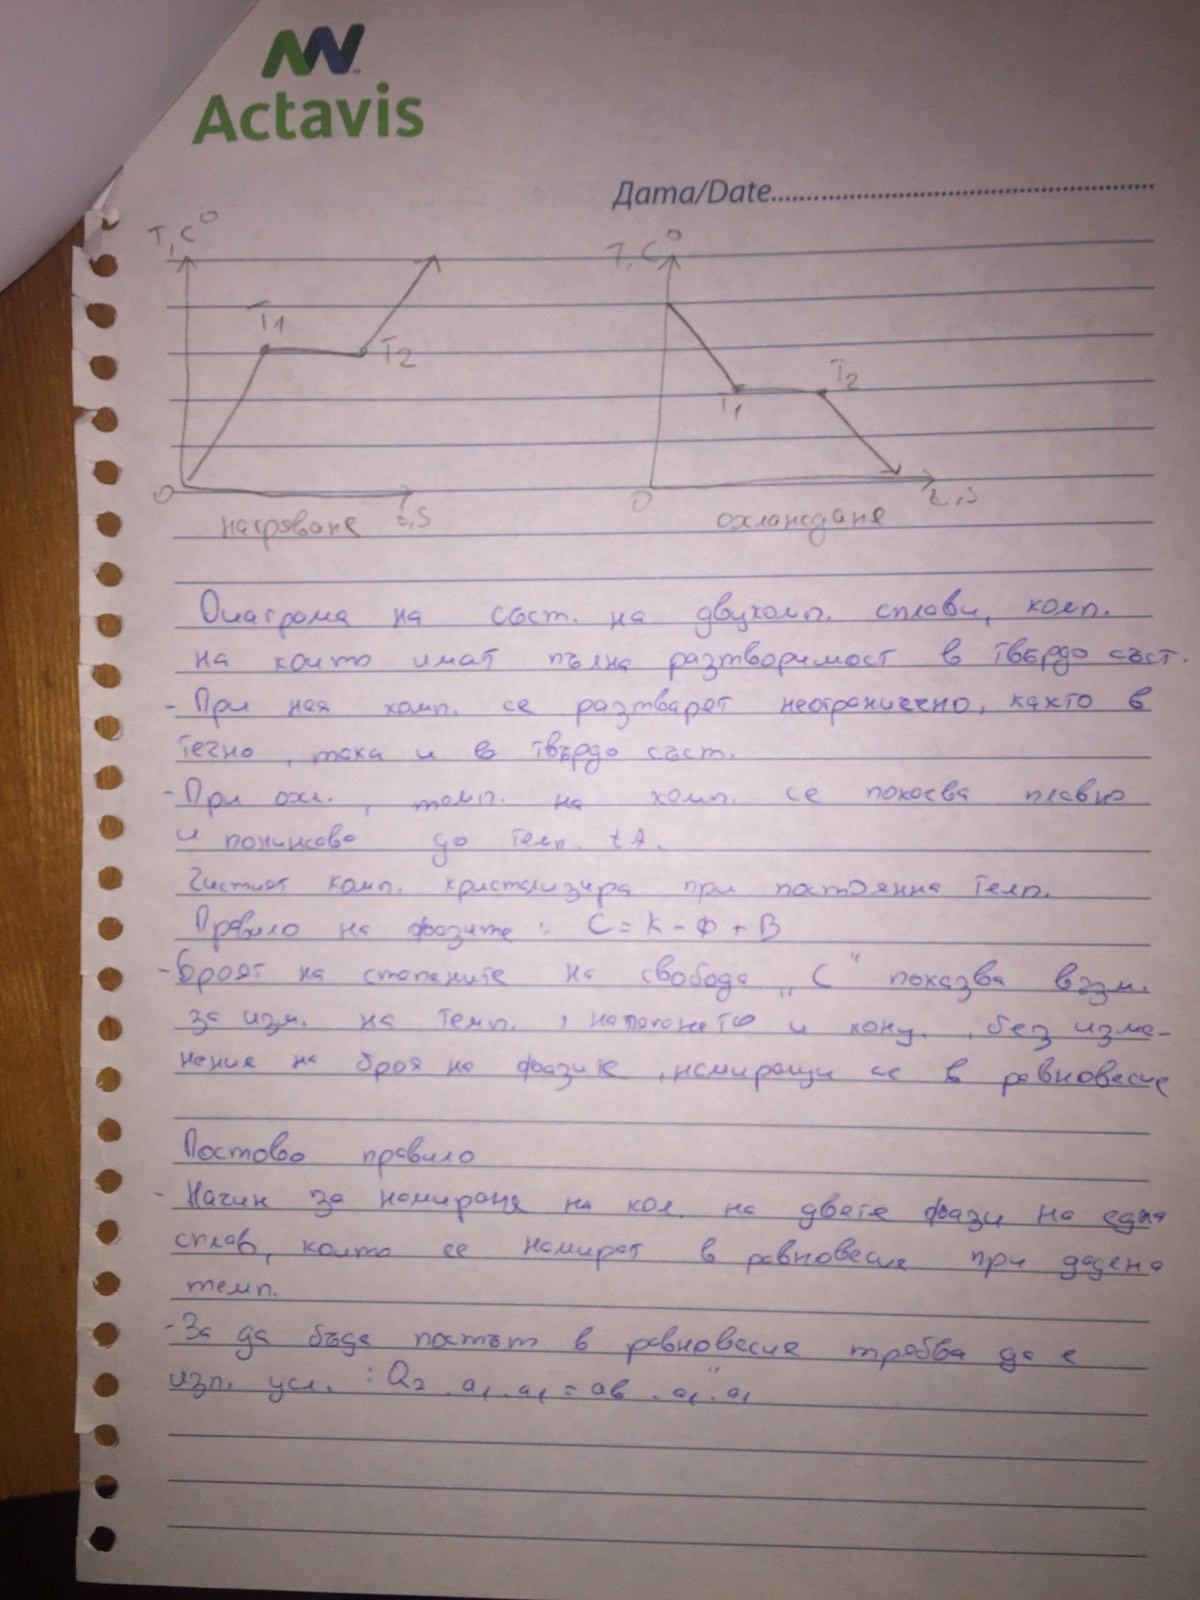 Actavis
Дата/Date
T, C°
T1
T2
0
t,s
нагряване
T, C°
T1
T2
0
t,s
охлаждане
Диаграма на съст. на двукомп. сплави, комп.
на които имат пълна разтворимост в твърдо съст.
- При нея комп. се разтварят неограничено, както в
течно, така и в твърдо съст.
- При охл., темп. на комп. се покосва плавно
и понижава до темп. tA.
Чистият комп. кристализира при постоянна темп.
Правило на фазите: C = K - Ф + B
- Броят на степените на свобода „C" показва възм.
за изм. на темп., налягането и конц., без изме-
нение на броя на фазите, намиращи се в равновесие
Лостово правило
- Начин за намиране на кол. на двете фази на една
сплав, които се намират в равновесие при дадена
темп.
- За да бъде лостът в равновесие трябва да е
изп. усл. :